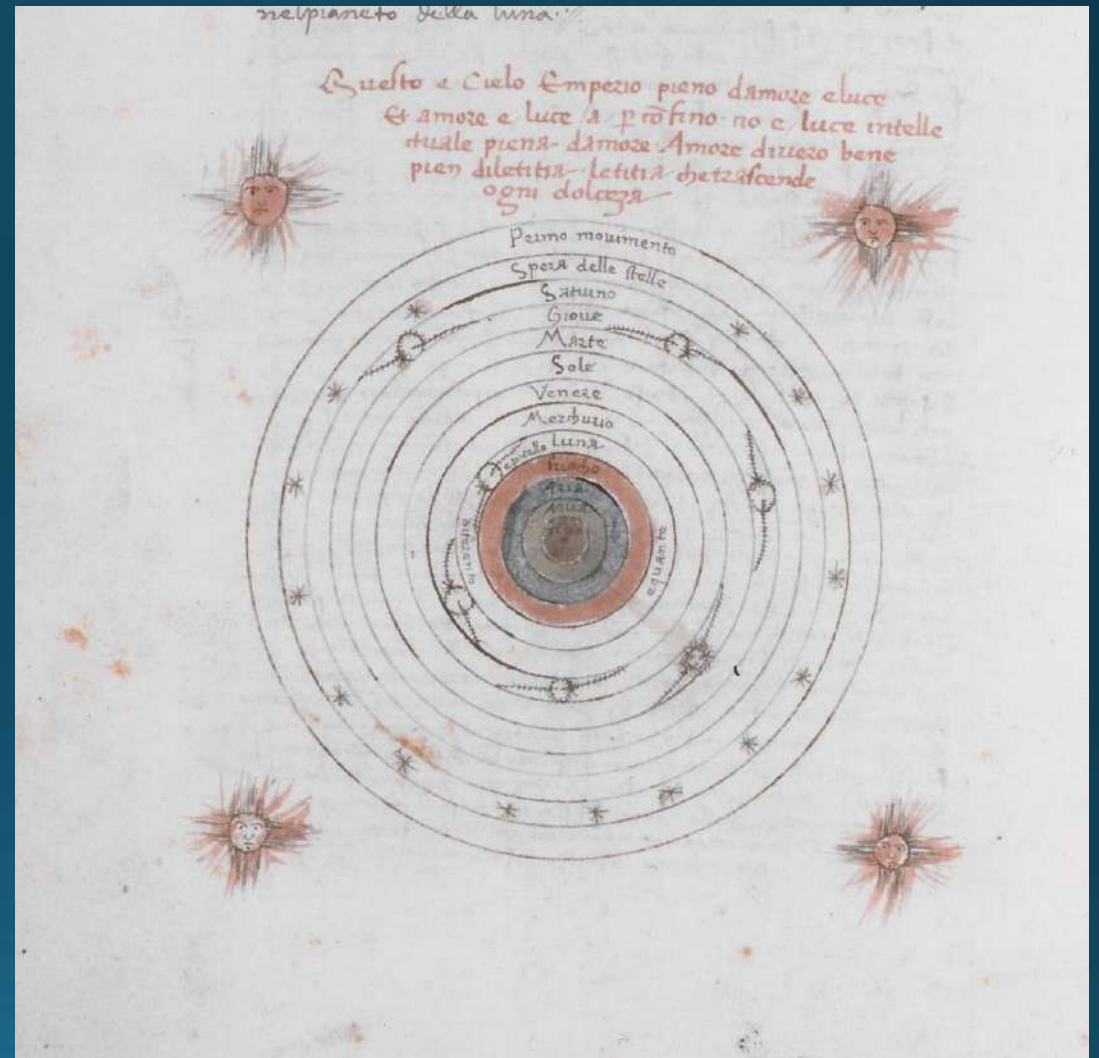 nelpianeto della luna
Questo e Cielo Emperio pieno damore eluce
Et amore e luce a p cōfino no e luce intelle
ctuale piena damore Amore diuero bene
pien diletitia letitia chetrascende
ogni dolceza
Primo mouimento
Spera delle stelle
Saturno
Gioue
Marte
Sole
Venere
Merchurio
Luna
epiciclo
fuocho
Aria
Aqua
diferente
equante